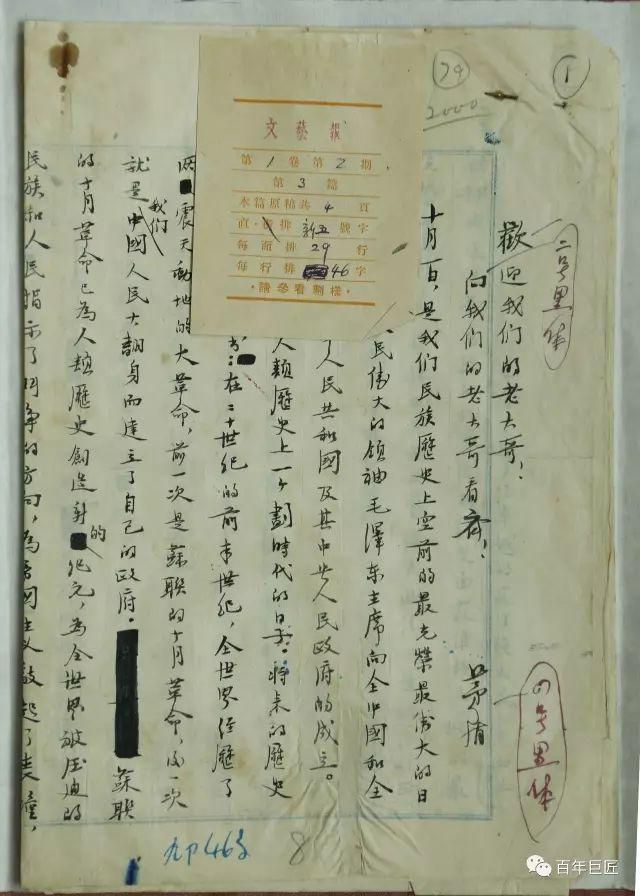 1
79
2000
二号黑体
歡迎我们的老大哥,
向我们的老大哥看齐,
茅盾
四号黑体
文藝報
第1卷第2期
第3篇
本篇原稿共4頁
直·橫排新五號字
每面排29行
每行排46字
·請參看劃樣·
十月一日,是我们民族歷史上空前的最光榮最偉大的日
民偉大的領袖毛澤东主席向全中國和全
了人民共和國及其中央人民政府的成立。
人類歷史上一个劃時代的日子。將来的歷史
:在二十世纪的前半世纪,全世界经歷了
两震天動地的大革命,前一次是蘇联的十月革命,后一次
就是我们中國人民大翻身而建立了自己的政府。蘇联
的十月革命已为人類歷史創造新的纪元,为全世界被压迫的
民族和人民指示了鬥争的方向,為帝國主义敲起了丧鐘,
8
百年巨匠